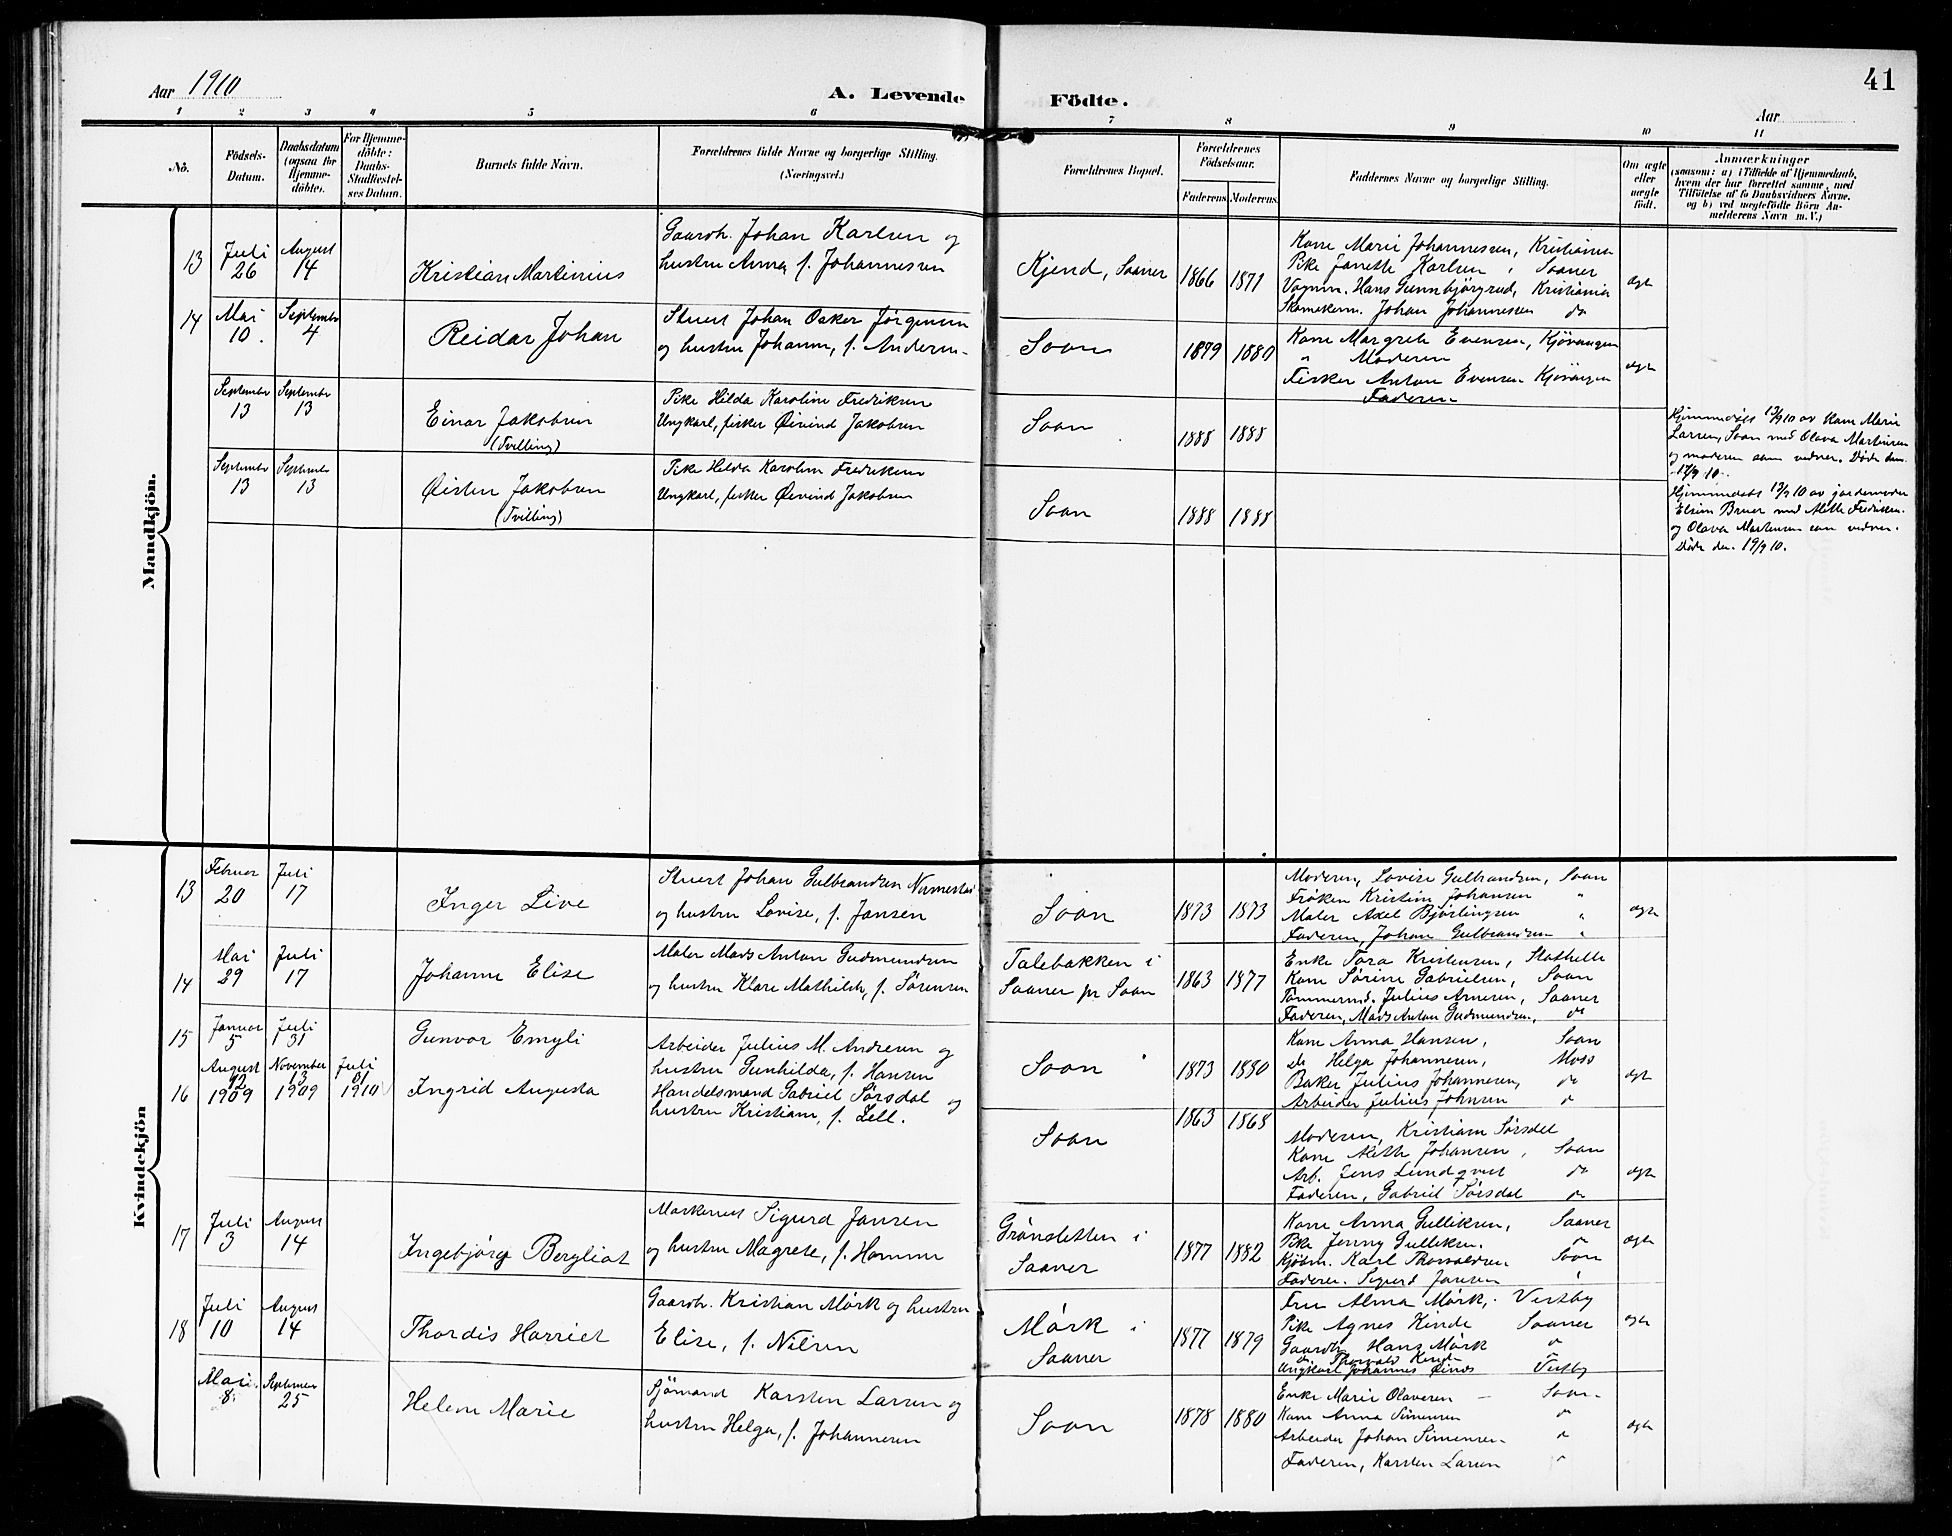 Aar 1910
A. Levende Födte.
Aar
41
1 2 3 4 5 6 7 8 9 10 11
No.
Födsels-
Datum.
Daabsdatum
(ogsaa for
Hjemme-
döbte).
For Hjemme-
döbte:
Daabs-
Stadfæstel-
ses Datum.
Barnets fulde Navn.
Forældrenes fulde Navne og borgerlige Stilling.
(Næringsvei.)
Forældrenes Bopæl.
Forældrenes
Födselsaar.
Faderens Moderens
Faddernes Navne og borgerlige Stilling.
Om ægte
eller
uægte
födt.
Anmærkninger
(saasom: a) i Tilfælde af Hjemmedaab,
hvem der har forrettet samme, med
Tilföielse af to Daabsvidners Navne.
og b) ved uægtefödte Börn An-
melderens Navn m. V.)
Mandkjön.
13
Juli
26
August
14
Kristian Martinius
Gaardb. Johan Karlsen og
hustru Anna f. Johannessen
Kjend, Saaner
1866 1871
Kone Marie Johannessen, Kristiania
Pike Janette Karlsen, Saaner
Vognm. Hans Gunnbjörgrud, Kristiania
Skomakerm. Johan Johannessen do
ægte
14
Mai
10
September
4
Reidar Johan
Stuert Johan Oskar Jörgensen
og hustru Johanne, f. Andersen
Soon
1879 1880
Kone Margrete Evensen, Kjövangen
" Moderen
Fisker Anton Evensen Kjövangen
Faderen
ægte
September
13
September
13
Einar Jakobsen
(Tvilling)
Pike Hilda Karoline Fredriksen
Ungkarl, fisker Øivind Jakobsen
Soon
1888 1888
Hjemmedöbt 13/9 10 av Kone Marie
Larsen, Soon med Olava Martinsen
og moderen som vidner. Döde den
17/9 10.
September
13
September
13
Øisten Jakobsen
(Tvilling)
Pike Hilda Karoline Fredriksen
Ungkarl, fisker Øivind Jakobsen
Soon
1888 1888
Hjemmedöbt 13/9 10 av jordemoder
Elsine Bruer med Mille Fredriksen
og Olava Martinsen som vidner.
Döde den 19/9 10.
Kvindekjön
13
Februar
20
Juli
17
Inger Live
Stuert Johan Gulbrandsen Nermestad
og hustru Lovise, f. Jansen
Soon
1873 1873
Moderen, Lovise Gulbrandsen, Soon
Fröken Kristine Johansen "
Maler Axel Björlingsen "
Faderen, Johan Gulbrandsen "
ægte
14
Mai
29
Juli
17
Johanne Elise
Maler Mads Anton Gudmundsen
og hustru Klara Mathilde, f. Sörensen
Talebakken i
Saaner pr Soon
1863 1877
Enke Tora Kristensen, Stathelle
Kone Sörine Gabrielsen, Soon
Tömmermd. Julius Arnesen, Saaner
Faderen, Mads Anton Gudmundsen, do
15
Januar
5
Juli
31
Gunvor Emyli
Arbeider Julius M. Andresen og
hustru Gunhilda, f. Hansen
Soon
1873 1880
Kone Anna Hansen, Soon
do Helga Johannesen, Moss
Baker Julius Johannesen, do
Arbeider Julius Johnsen do
ægte
16
August
12
1909
November
13
1909
Juli
31
1910
Ingrid Augusta
Handelsmand Gabriel Sörsdal og
hustru Kristiane, f. Lell.
Soon
1863 1868
Moderen, Kristiane Sörsdal
Kone Mette Johansen, Soon
Arb. Jens Lundqvist do
Faderen, Gabriel Sörsdal do
ægte
17
Juli
3
August
14
Ingebjörg Bergliot
Maskinist Sigurd Jansen
og hustru Magrete, f. Hamme
Grönsletten i
Saaner
1877 1882
Kone Anna Gulliksen, Saaner
Pike Jenny Gulliksen. do
Kjöbm. Karl Thorvaldsen Soon
Faderen. Sigurd Jansen
ægte
18
Juli
10
August
14
Thordis Harriet
Gaardb. Kristian Mörk og hustru
Elise, f. Nilsen
Mörk i
Saaner
1877 1879
Fru Alma Mörk, Vestby
Pike Agnes Kinde Saaner
Gaardb Hans Mörk do
do Thorvald Kinde do
Ungkarl Johannes Vestby
ægte
Mai
8.
September
25
Helene Marie
Sjömand Karsten Larsen og
hustru Helga, f. Johannesen
Soon
1878 1880
Enke Marie Olavesen Soon
Kone Anna Simensen do
Arbeider Johan Simensen do
Faderen, Karsten Larsen "
ægte